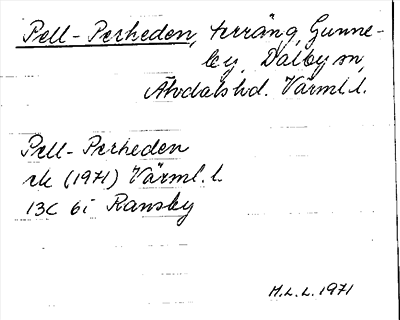 Pell-Perheden, terräng, Gunne-
by, Dalby sn,
Älvdals hd. Värml. l.
Pell-Perheden
rk (1971) Värml. l.
13C 6i Ransby
M.L.L. 1971